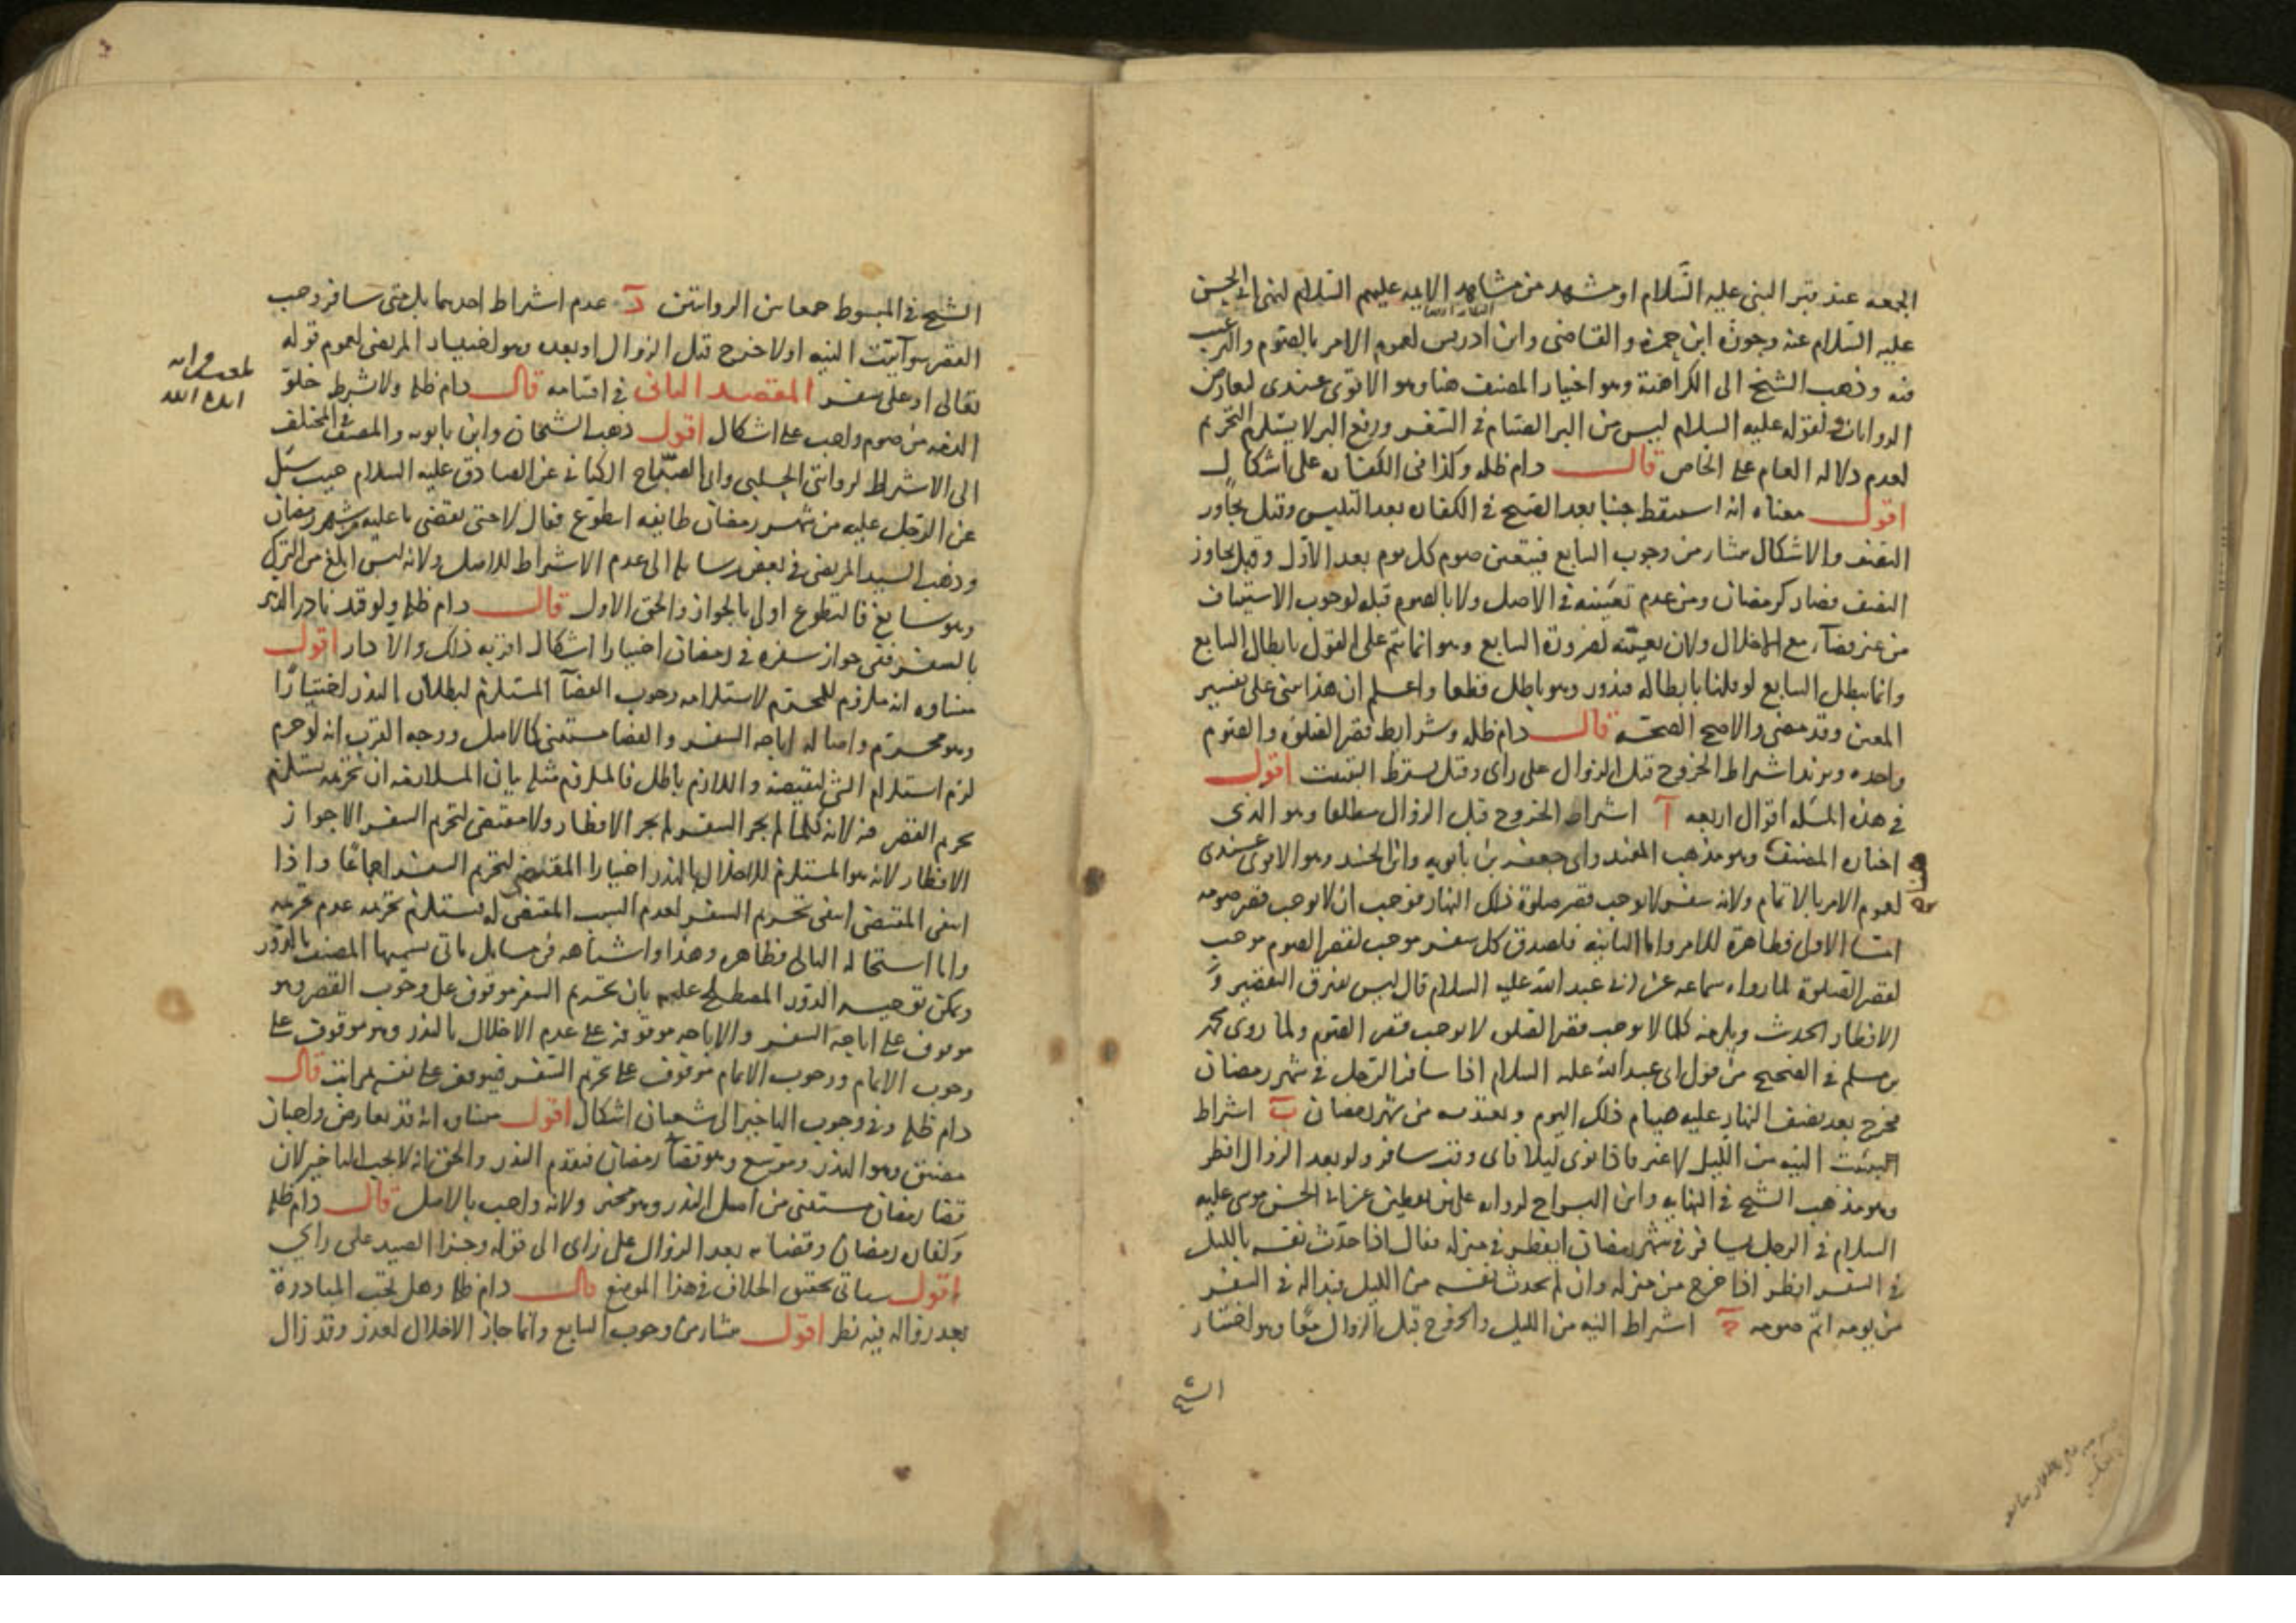 الجمعه عند قبر النبى عليه السَّلام او مشهد من مشاهد الايمه عليهم السلام لنهى ابى الحسن
عليه السّلام عنه وجوزه ابن حمزه و القاضى وابن ادريس لعموم الامر بالصّوم والترغيب
فيه وذهب الشيخ الى الكراهية وهو اختيار المصنف هنا وهو الاقوى عندى لتعارض
الروايات ولقوله عليه السلام ليس من البر الصيام فى السّفر ورفع البر لا يستلزم التحريم
لعدم دلاله العام على الخاص قال دام ظله وكذا فى الكفاره على اشكال
اقول معناه اذا استيقظ جنبا بعد الصبح فى الكفاره بعد التلبس وقبل تجاوز
النصف والاشكال منشاؤه من وجوب التتابع فيتعين صوم كل يوم بعد الاوّل وقبل تجاوز
النصف فصار كرمضان ومن عدم تعيّنه فى الاصل ولا بالصوم قبله لوجوب الاستيناف
من غير قضآء مع الاخلال ولان تعيّنه لضرورة التتابع وهو انما يتم على القول بابطال التتابع
وانما يبطل التتابع لو قلنا بابطاله فيدور وهو باطل قطعا واعلم ان هذا مبنى على تفسير
المعين وقد مضى والاصح الصحة قال دام ظله وشرايط قصر الصلوة والصوم
واحده ويزيد اشتراط الخروج قبل الزوال على راى وقيل يشترط التبييت اقول
فى هذه المسله اقوال اربعه آ اشتراط الخروج قبل الزوال مطلقا وهو الذى
اختاره المصنف وهو مذهب المفيد وابى جعفر بن بابويه وابن الجنيد وهو الاقوى عندى
لعموم الامر بالاتمام ولانه سفر لا يوجب قصر صلوة ذلك النهار فوجب ان لا يوجب قصر صومه
امّا الاولى فظاهرة للامر واما الثانيه فلصدق كل سفر موجب لقصر الصوم موجب
لقصر الصلوة لما رواه سماعه عن ابى عبد الله عليه السلام قال ليس يفترق التقصير و
الافطار الحديث ويلزمه كلما لا يوجب قصر الصلوه لا يوجب قصر الصوم ولما روى محمد
بن مسلم فى الصحيح من قول ابى عبد الله عليه السلام اذا سافر الرجل فى شهر رمضان
فخرج بعد نصف النهار عليه صيام ذلك اليوم ويعتد به من شهر رمضان بَ اشتراط
تبييت النيه من الليل لا غير فاذا نوى ليلا فاى وقت سافر ولو بعد الزوال افطر
وهو مذهب الشيخ فى النهايه وابن البراج لروايه على بن يقطين عن ابى الحسن موسى عليه
السلام فى الرجل يسافر فى شهر رمضان ايفطر فى منزله فقال اذا حدّث نفسه بالليل
فى السفر افطر اذا خرج من منزله وان لم يحدث نفسه من الليل فبدا له فى السفر
من يومه اتم صومه جَ اشتراط النيه من الليل والخروج قبل الزوال معًا وهو اختيار
الشيخ
الشيخ فى المبسوط جمعا بين الروايتين دَ عدم اشتراط احدهما بل متى سافر وجب
القصر سوآء بيّت النيه اولا خرج قبل الزوال او بعده وهو اختيار المرتضى لعموم قوله
تعالى او على سفر المقصد الثانى فى اقسامه قال دام ظله ولا يشترط خلوّ
الذمه من صوم واجب على اشكال اقول ذهب الشيخان وابن بابويه والمصنف فى المختلف
الى الاشتراط لروايتى الحلبى وابى الصبّاح الكنانى عن الصادق عليه السلام حيث سئل
عن الرجل عليه من شهر رمضان طايفه ايتطوع فقال لا حتى يقضى ما عليه من شهر رمضان
وذهب السيد المرتضى فى بعض رسايله الى عدم الاشتراط للاصل ولانه ليس ابلغ من الترك
وهو سايغ فالتطوع اولى بالجواز والحق الاول قال دام ظله ولو قيد نادر الدهر
بالسفر ففى جواز سفره فى رمضان اختيارا اشكال اقربه ذلك والا دار اقول
منشاؤه انه ملزوم للمحرّم لاستلزامه وجوب القضآ المستلزم لبطلان النذر اختيارًا
وهو محرّم واصاله اباحه السفر والقضا مستثنى كالاصل ووجه القرب انه لو حرم
لزم استلزام الشى لنقيضه واللازم باطل فالملزوم مثله بيان الملازمه ان تحريمه يستلزم
تحريم القصر فيه لانه كلما لم يجز السفر لم يجز الافطار ولا مقتضى لتحريم السفر الا جواز
الافطار لانه هو المستلزم للاخلال بالنذر اختيارا المقتضى لتحريم السفر اجماعًا واذا
انتفى المقتضى انتفى تحريم السفر لعدم السبب المقتضى له فيستلزم تحريمه عدم تحريمه
واما استحاله التالى فظاهره وهذا واشباهه فى مسايل ياتى يسميها المصنف بالدّور
ويمكن توجيه الدّور المصطلح عليه بان تحريم السفر موقوف على وجوب القصر وهو
موقوف على اباحة السفر والاباحه موقوفه على عدم الاخلال بالنذر وهو موقوف على
وجوب الاتمام ووجوب الاتمام موقوف على تحريم السّفر فيوقف على نفسه بمراتب قال
دام ظله وفى وجوب التاخير الى شعبان اشكال اقول منشاؤه انه قد تعارض واجبان
مضيق وهو النذر وموسّع وهو قضآ رمضان فيقدم النذر والحق انه لا يجب التاخير لان
قضا رمضان مستثنى من اصل النذر وهو مخير ولانه واجب بالاصل قال دام ظله
وكفاره رمضان وقضائه بعد الزوال على راى الى قوله وجزا الصيد على راي
اقول سياتى تحقيق الخلاف فى هذا الموضع قال دام ظله وهل يجب المبادرة
بعد زواله فيه نظر اقول منشاؤه من وجوب التتابع وانما جاز الاخلال لعذر وقد زال
ايده الله